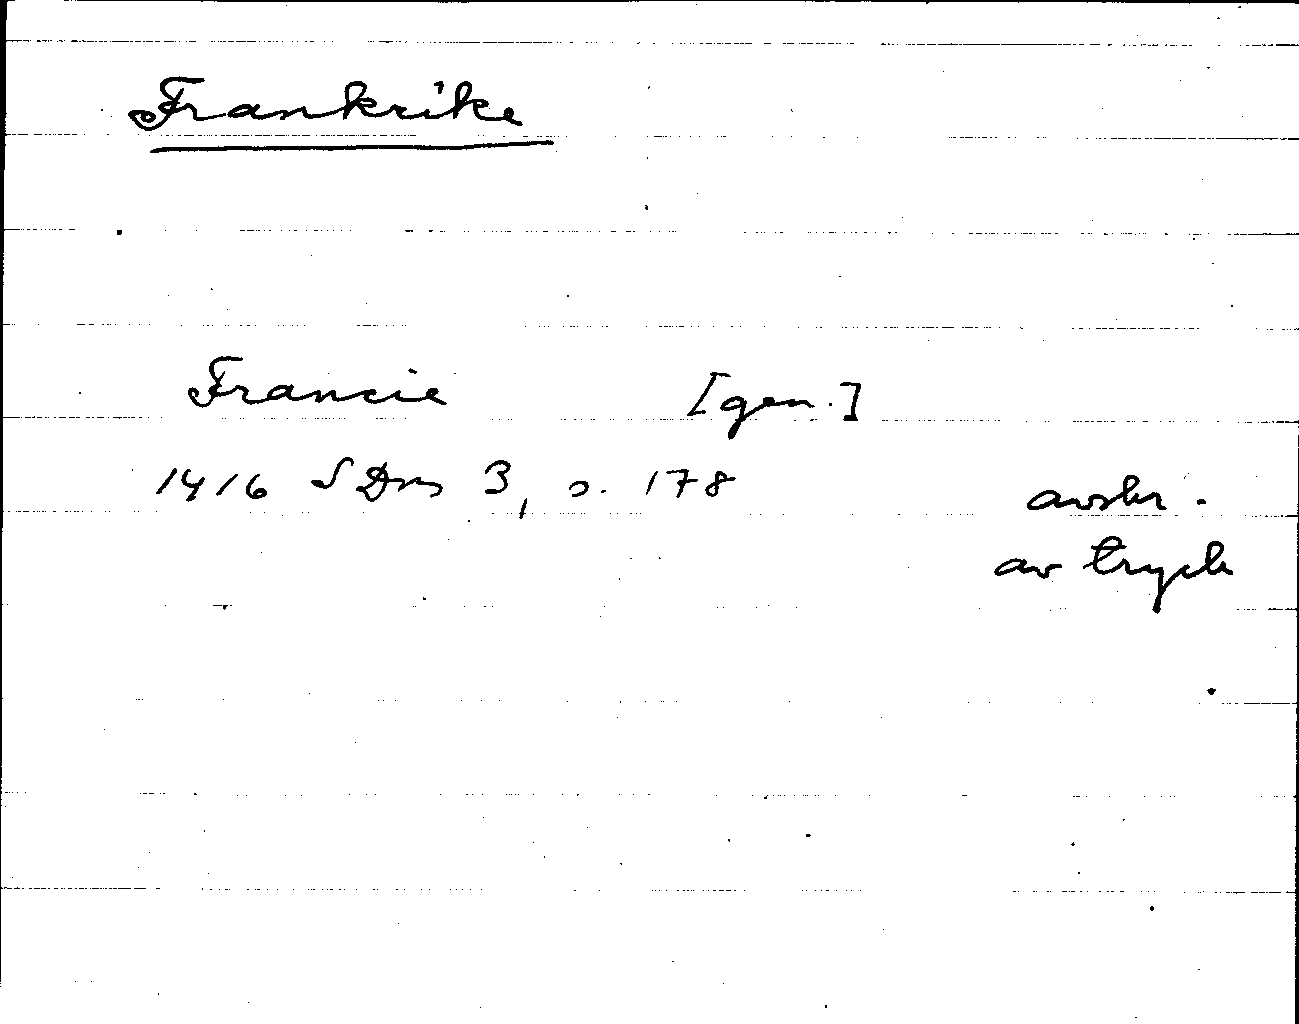 Frankrike
Francie [gen.]
1416 SDns 3, s. 178
avskr.
av tryck